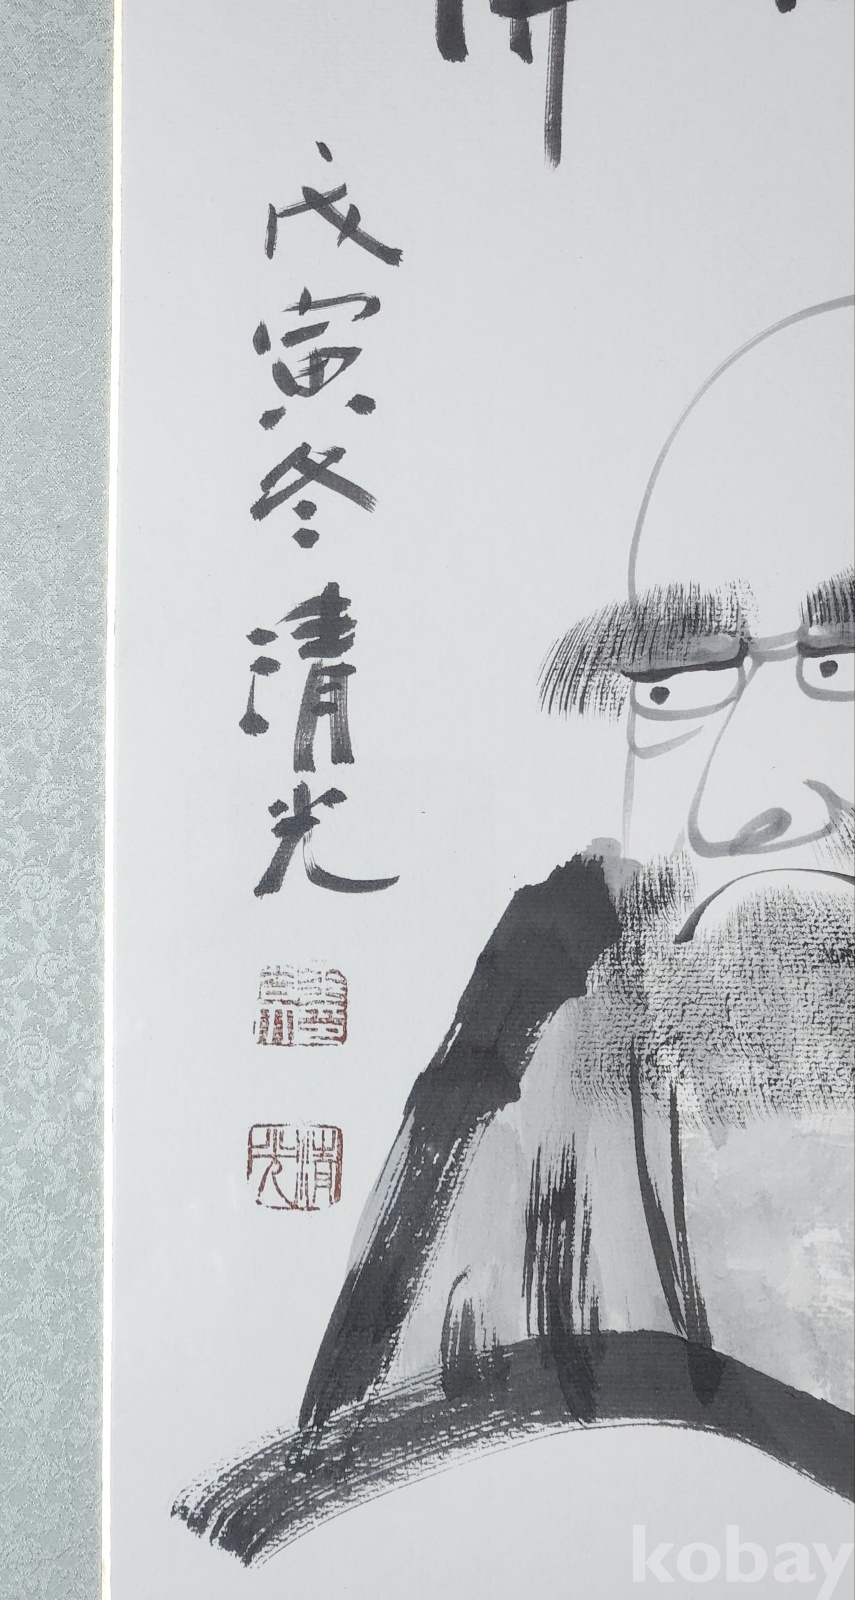 戊寅冬
清光
清光
kobay